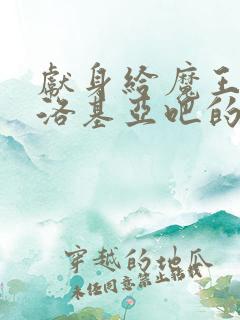 獻身給魔王
洛基亞吧的
穿越的地瓜
未经同意禁止转载